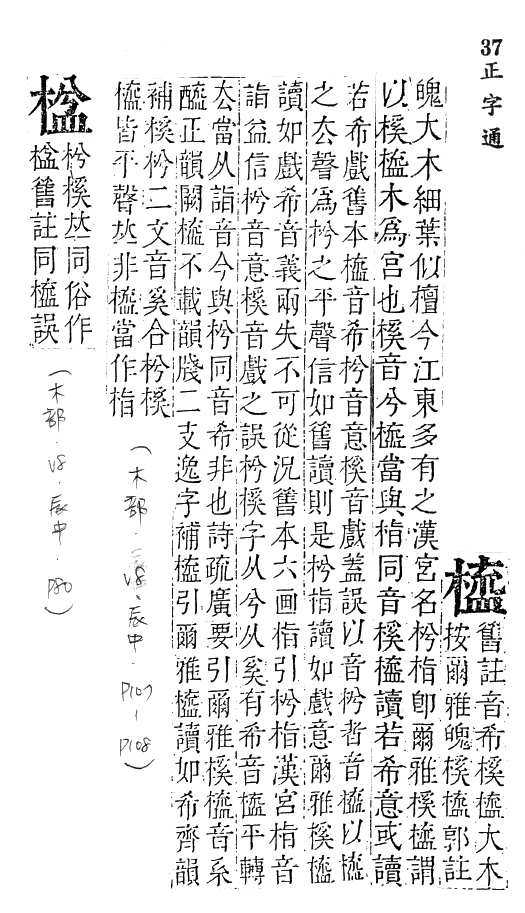 37 正字通
橀
舊註音希橀橀大木
按爾雅魄榽橀郭註
魄大木細葉似檀今江東多有之漢宮名枍栺卽爾雅榽橀謂
以榽橀木爲宮也榽音兮橀當與栺同音榽橀讀若希意或讀
若希戲舊本橀音希枍音意榽音戲蓋誤以音枍者音橀以橀
之去聲爲枍之平聲信如舊讀則是枍栺讀如戲意爾雅榽橀
讀如戲希音義兩失不可從況舊本六画栺引枍栺漢宮栺音
詣益信枍音意榽音戲之誤枍榽字从兮从奚有希音橀平轉
去當从詣音今與枍同音希非也詩疏廣要引爾雅榽橀音系
醯正韻闕橀不載韻牋二支逸字補橀引爾雅橀讀如希齊韻
補榽枍二文音奚合枍榽
橀皆平聲𠀤非橀當作栺
(木部.辰中.P107-P108)
枍榽𠀤同俗作
舊註同橀誤
(木部.辰中.P80)